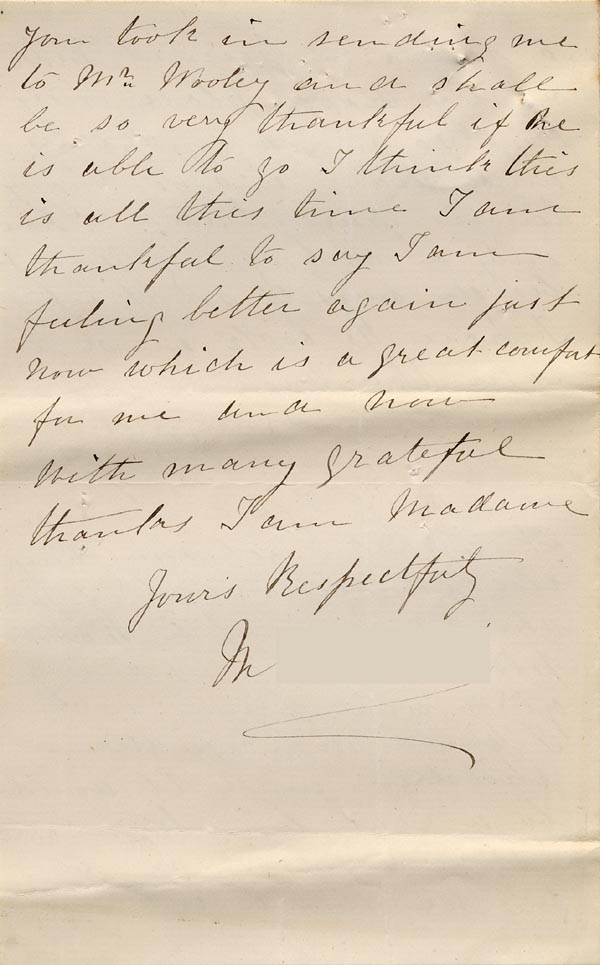 you took in sending me
to Mrs Wooley and shall
be so very thankful if he
is able to go I think this
is all this time I am
thankful to say I am
feeling better again just
now which is a great comfort
for me and now
with many grateful
thanks I am Madame
Yours Respectfuly
M